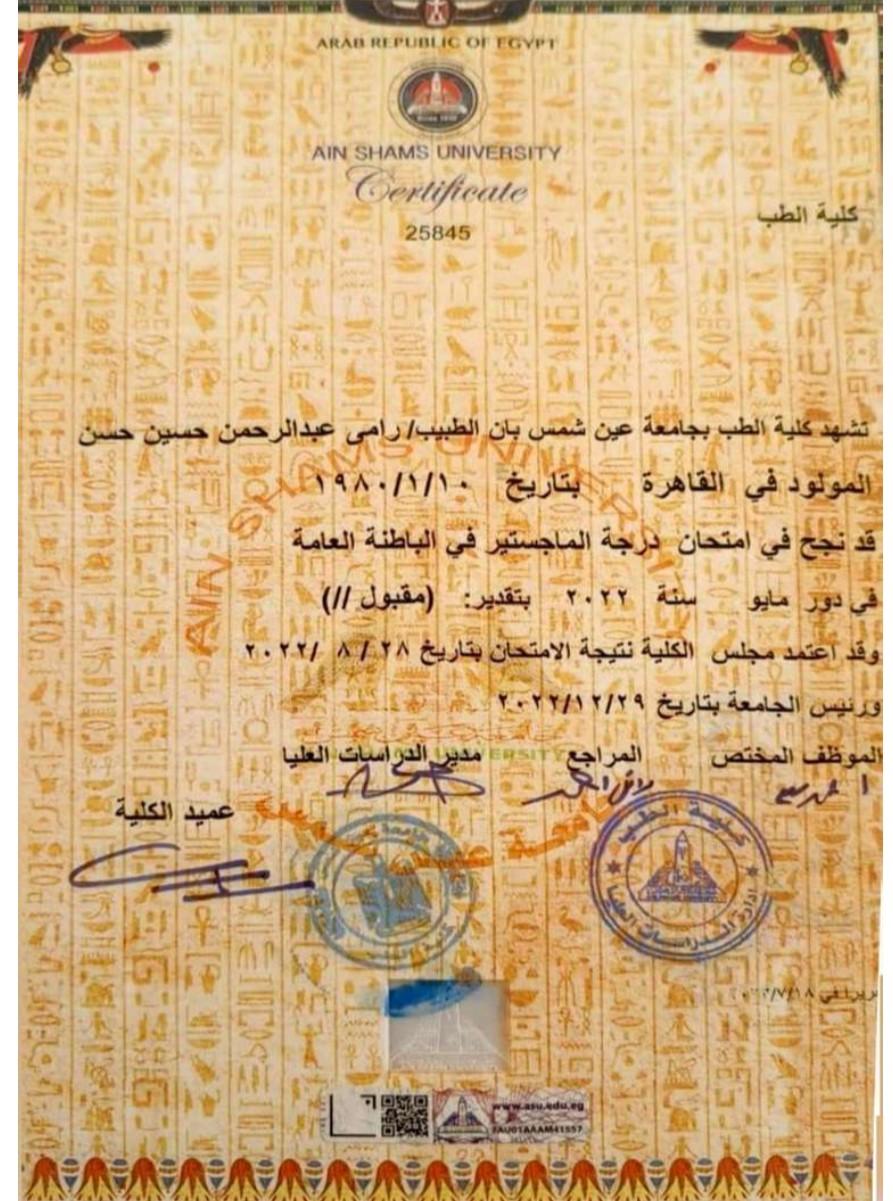 ARAB REPUBLIC OF EGYPT
AIN SHAMS UNIVERSITY
Certificate
25845
كلية الطب
تشهد كلية الطب بجامعة عين شمس بان الطبيب/ رامى عبدالرحمن حسين حسن
المولود في القاهرة بتاريخ ١٩٨٠/١/١٠
قد نجح في امتحان درجة الماجستير في الباطنة العامة
في دور مايو سنة ٢٠٢٢ بتقدير: (مقبول //)
وقد اعتمد مجلس الكلية نتيجة الامتحان بتاريخ ٢٨ / ٨ /٢٠٢٢
ورئيس الجامعة بتاريخ ٢٠٢٢/١٢/٢٩
الموظف المختص المراجع مدير الدراسات العليا
عميد الكلية
كلية الطب
ادارة الدراسات العليا
AIN SHAMS UNIVERSITY
جامعة عين شمس
www.asu.edu.eg
FAU01AAAM41557